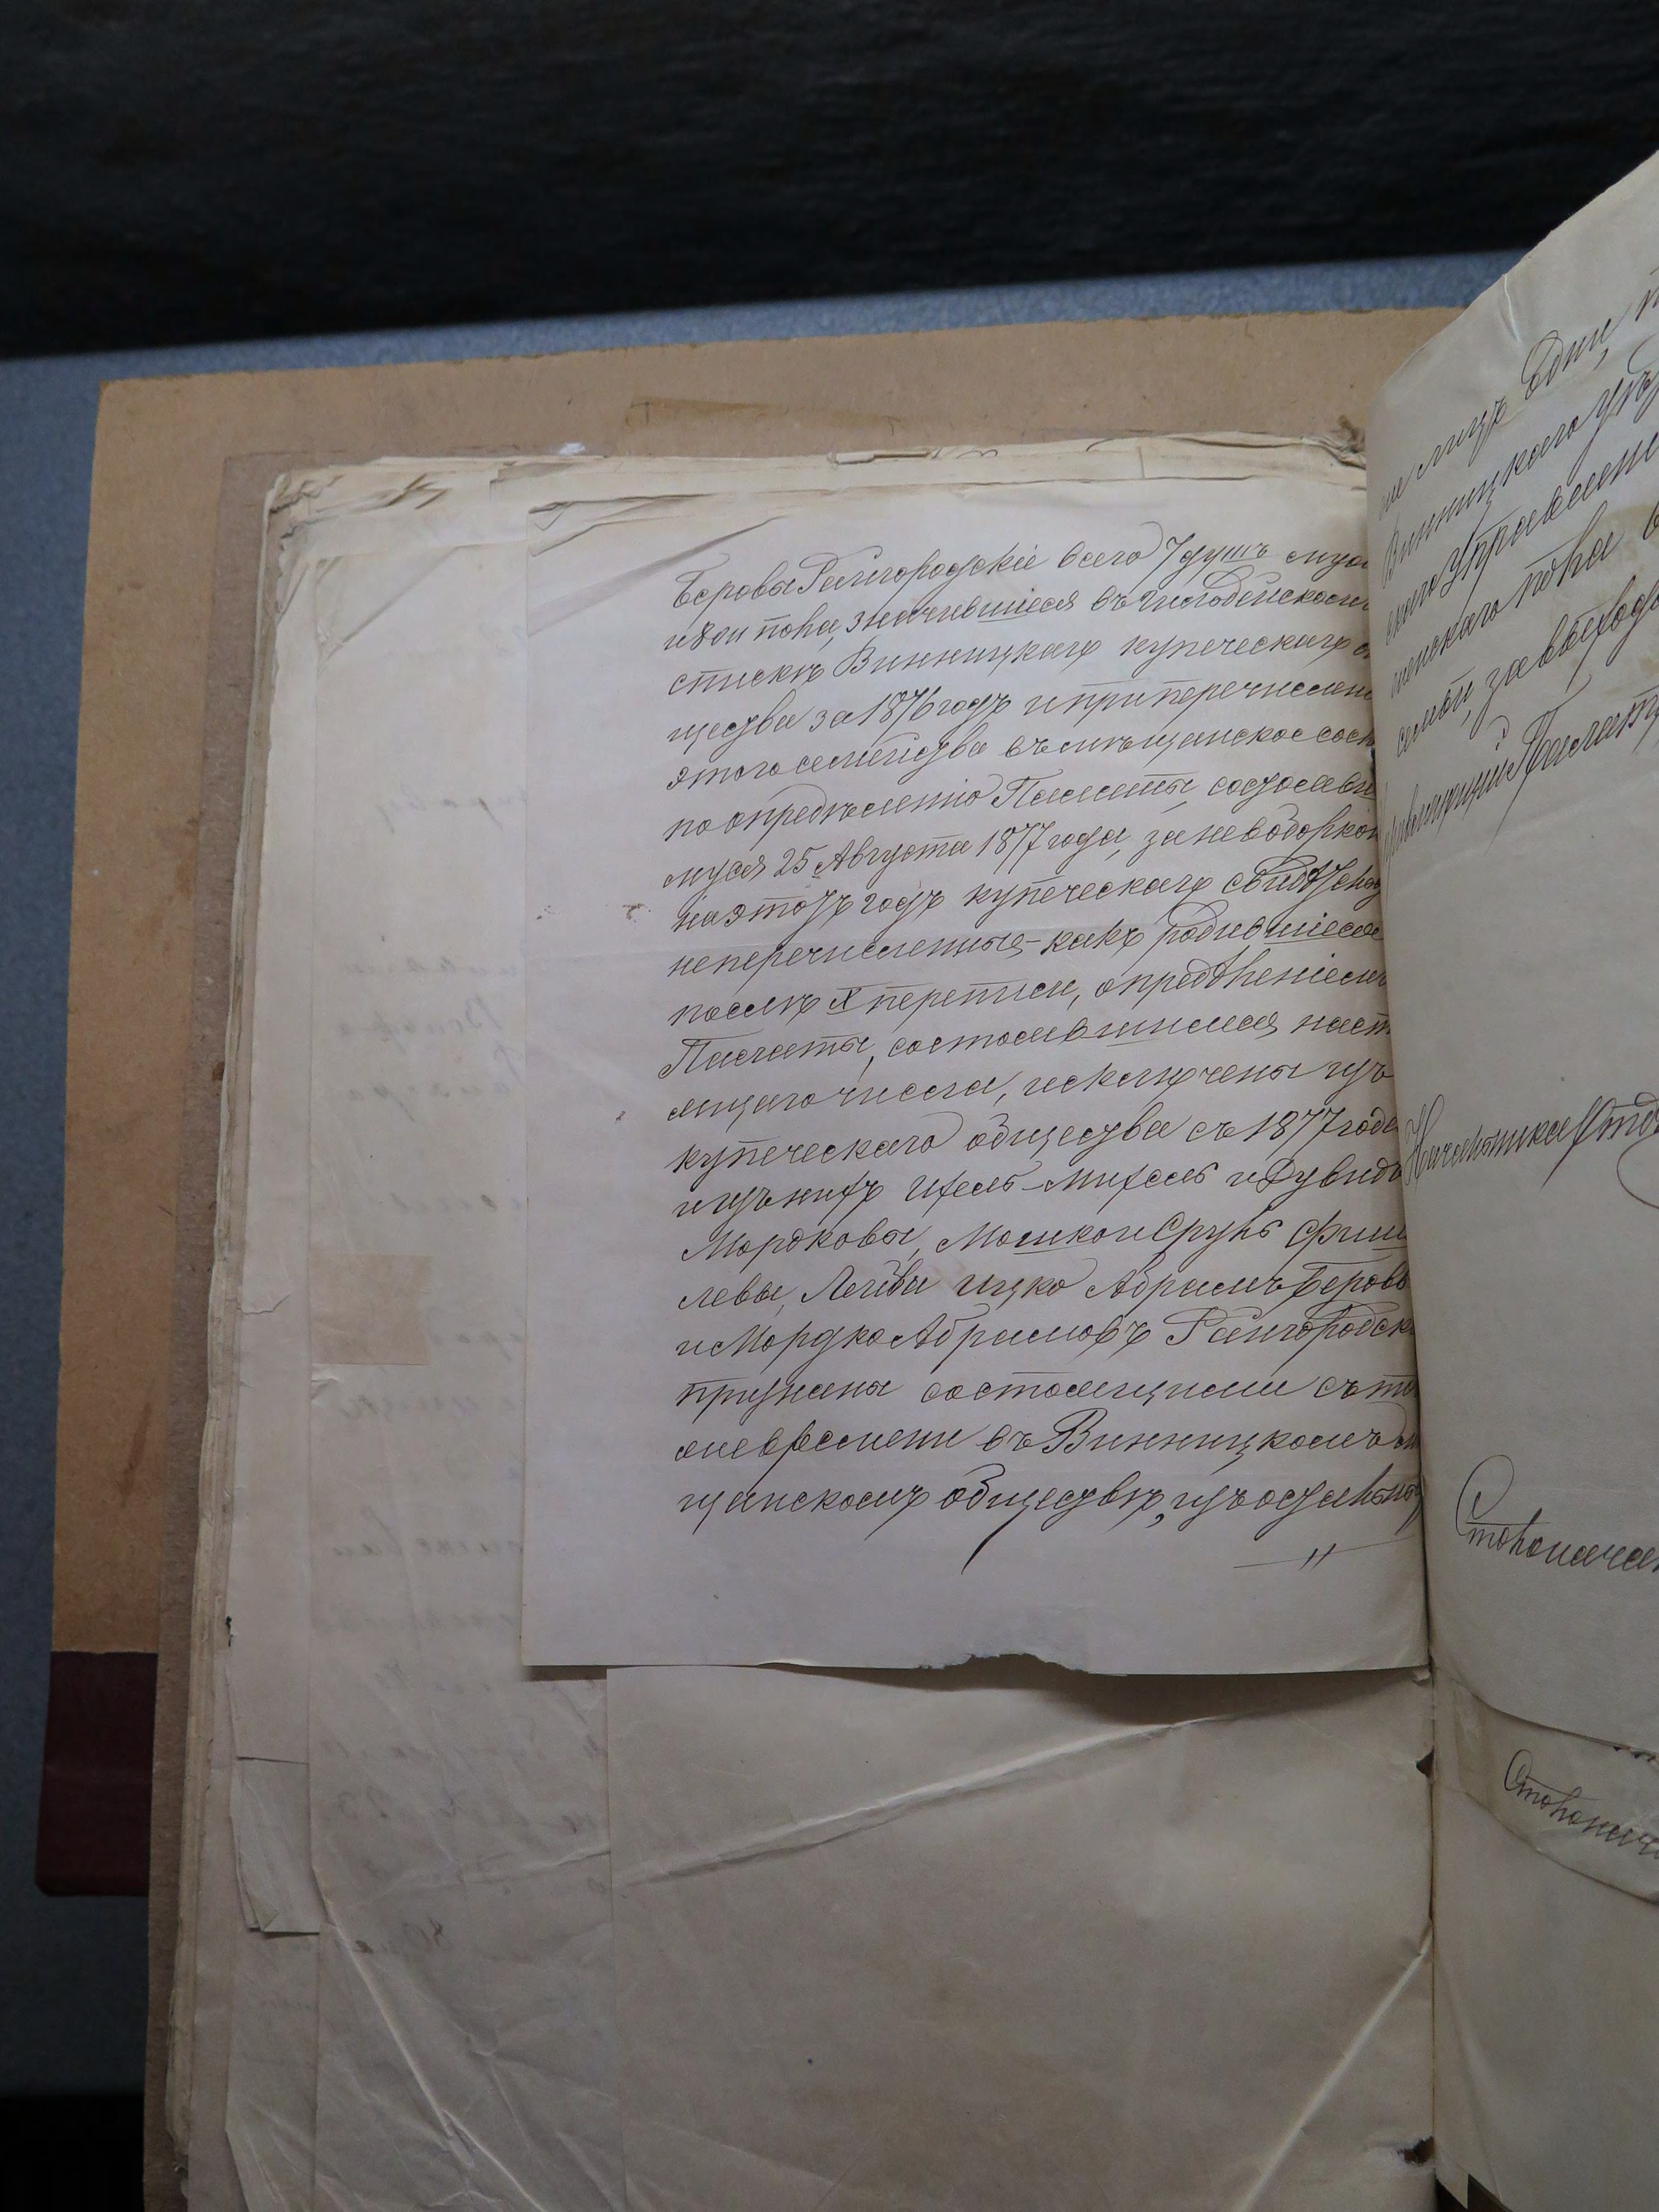 Беровы Райгородскіе всего 7 душъ муж
и 8 ой пола, значившіеся въ
спискѣ Винницкаго купеческаго о
щества за 1876 годъ и при перечислен
этого семейства въ мѣщанское сост
по опредѣленію Палаты, состоявше
муся 25 Августа 1877 года, за невыборкою
на этотъ годъ купеческаго свидѣ
неперечисленные, какъ родившіеся
послѣ X переписи, опредѣленіемъ
Палаты, состоявшимся наст
ящаго числа, исключены изъ
купеческаго общества съ 1877 года
и изъ нихъ Ихель-Михель и Дувидъ
Мордковы, Мошко и Сруль Фиш
левы, Лейба Ицко Абрамъ Беровы
и Мордко Абрамовъ Райгородск
признаны состоящими съ то
же времени въ Винницкомъ мѣ
щанскомъ обществѣ, изъ остальны
ни лицъ Едни,
Винницкаго Уѣ
скаго Управлені
женскаго пола в
семьи, за выходо
Палаты
Начальника Отд
Столонача
Столонача